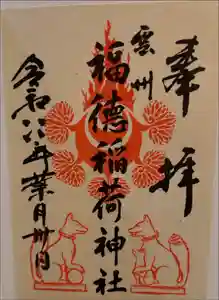 奉拝
雲州
福徳稲荷神社
令和六年葉月卅日